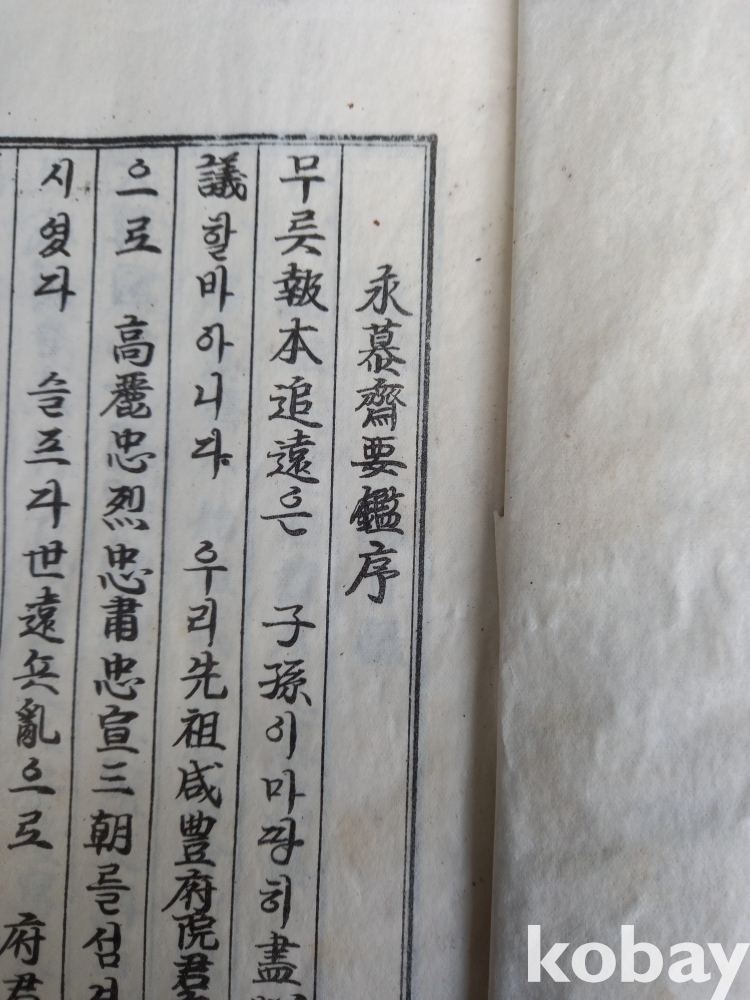 永慕齋要鑑序
무릇報本追遠은 子孫이마땅히盡
議할바아니라 우리先祖咸豊府院君
으로 高麗忠烈忠肅忠宣三朝를섬
시엿다 슬프다世遠兵亂으로 府君
kobay